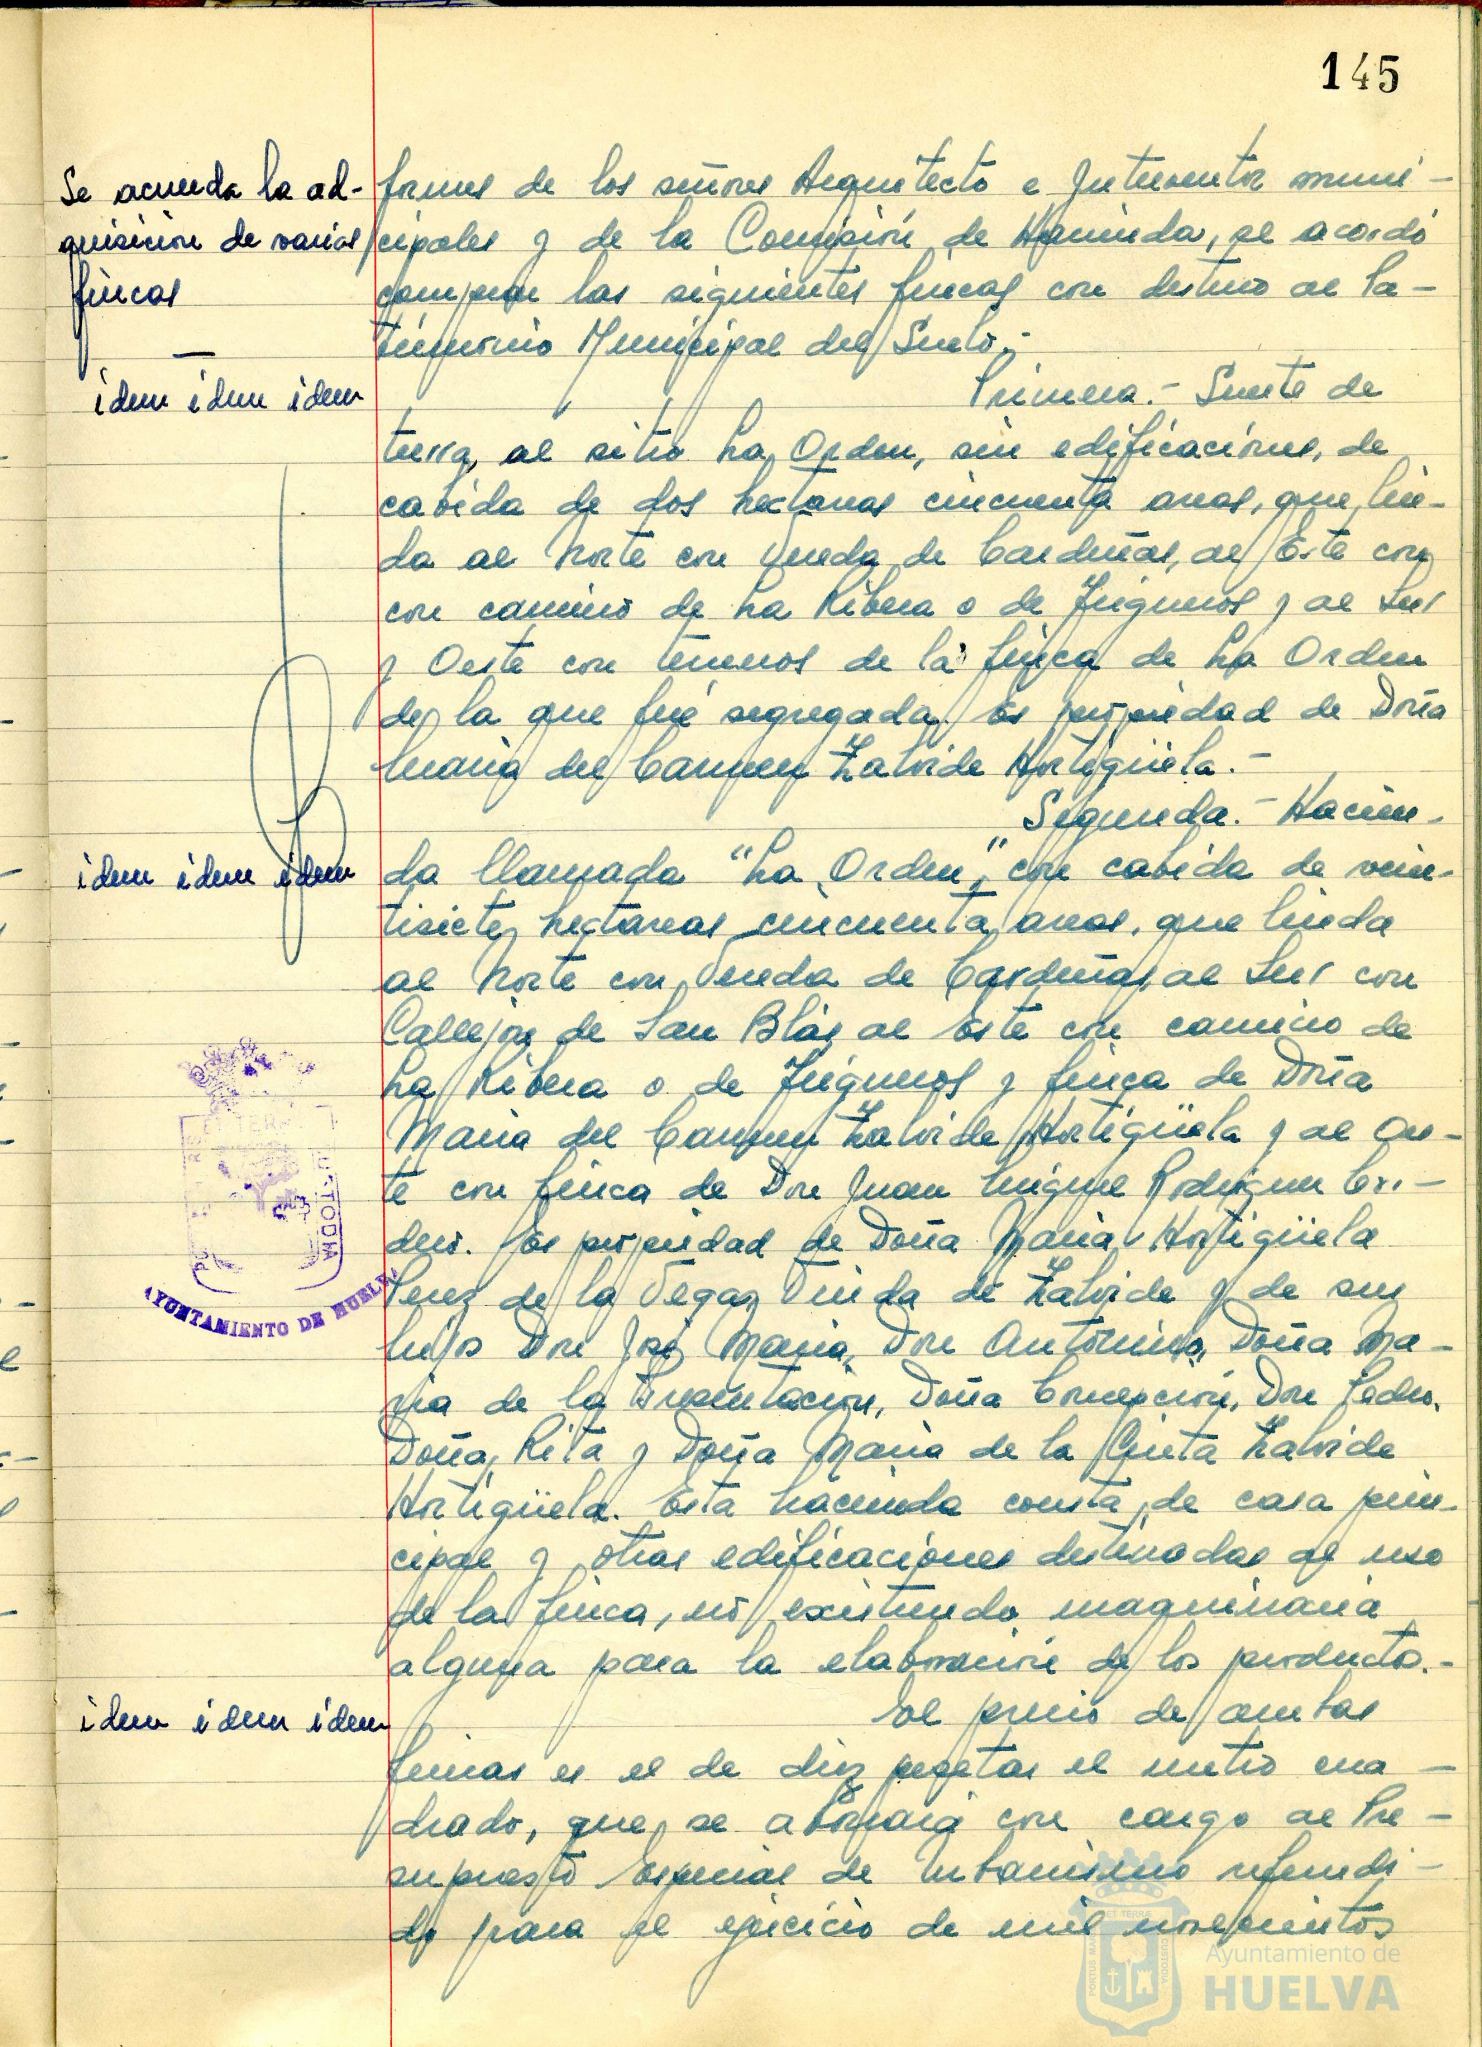 145
Se acuerda la ad-
quisición de varias
fincas
idem idem idem
idem idem idem
idem idem idem
formes de los señores Arquitecto e Interventor muni-
cipales y de la Comisión de Hacienda, se acordó
comprar las siguientes fincas con destino al Pa-
trimonio Municipal del Suelo.-
Primera.- Suerte de
tierra, al sitio La Orden, sin edificaciones, de
cabida de dos hectareas cincuenta areas, que lin-
da al Norte con Vereda de Cardeñas, al Este con
con camino de La Ribera o de Trigueros y al Sur
y Oeste con terrenos de la finca de La Orden
de la que fué segregada. Es propiedad de Doña
Maria del Carmen Zalvide Hortigüela.-
Segunda.- Hacien-
da llamada "La Orden", con cabida de vein-
tisiete hectareas cincuenta areas, que linda
al Norte con Vereda de Cardeñas, al Sur con
Callejon de San Blás al Este con camino de
La Ribera o de Trigueros y finca de Doña
Maria del Carmen Zalvide Hortigüela y al Oes-
te con finca de Don Juan Miguel Rodriguez Cor-
dero. Es propiedad de Doña Maria Hortigüela
Perez de la Vega, Viuda de Zalvide y de sus
hijos Don José Maria, Don Antonino, Doña Ma-
ria de la Presentación, Doña Concepción, Don Pedro,
Doña Rita y Doña Maria de la Cinta Zalvide
Hortigüela. Esta hacienda consta de casa prin-
cipal y otras edificaciones destinadas al uso
de la finca, no existiendo maquinaria
alguna para la elaboración de los productos.-
El precio de ambas
fincas es el de diez pesetas el metro cua-
drado, que se abonará con cargo al Pre-
supuesto Especial de Urbanismo refundi-
do para el ejercicio de mil novecientos
AYUNTAMIENTO DE HUELVA
Ayuntamiento de
HUELVA